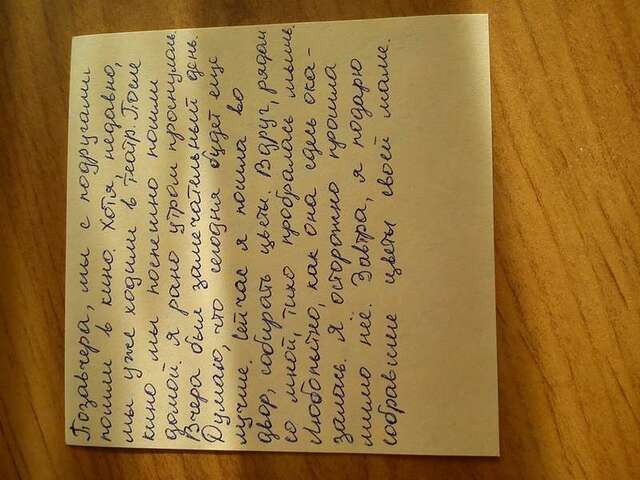 Позавчера, мы с подругами
пошли в кино. Хотя, недавно,
мы уже ходили в театр. После
кино мы поспешно пошли
домой. Я рано утром проснулась.
Вчера был замечательный день.
Думаю, что сегодня будет ещё
лучше. Сейчас я пошла во
двор, собирать цветы. Вдруг, рядом
со мной, тихо пробралась мышь.
Любопытно, как она здесь ока-
залась. Я осторожно прошла
мимо неё. Завтра, я подарю
собравшие цветы своей маме.